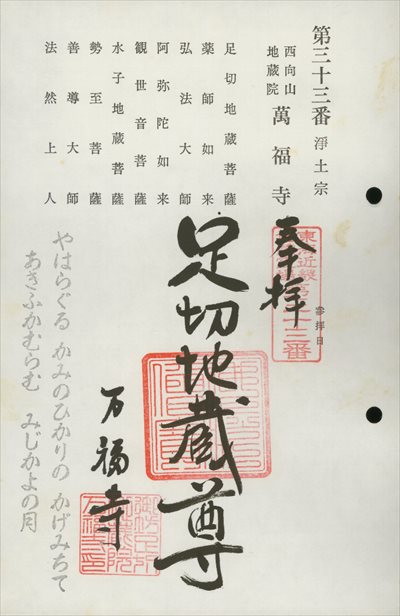 第三十三番 淨土宗
西向山
地蔵院
萬福寺
足切地蔵菩薩
薬師如来
弘法大師
阿弥陀如来
観世音菩薩
水子地蔵菩薩
勢至菩薩
善導大師
法然上人
参拝日
奉拝
三十三番
足切地蔵尊
万福寺
やはらぐる かみのひかりの かげみちて
あきふかむらむ みじかよの月